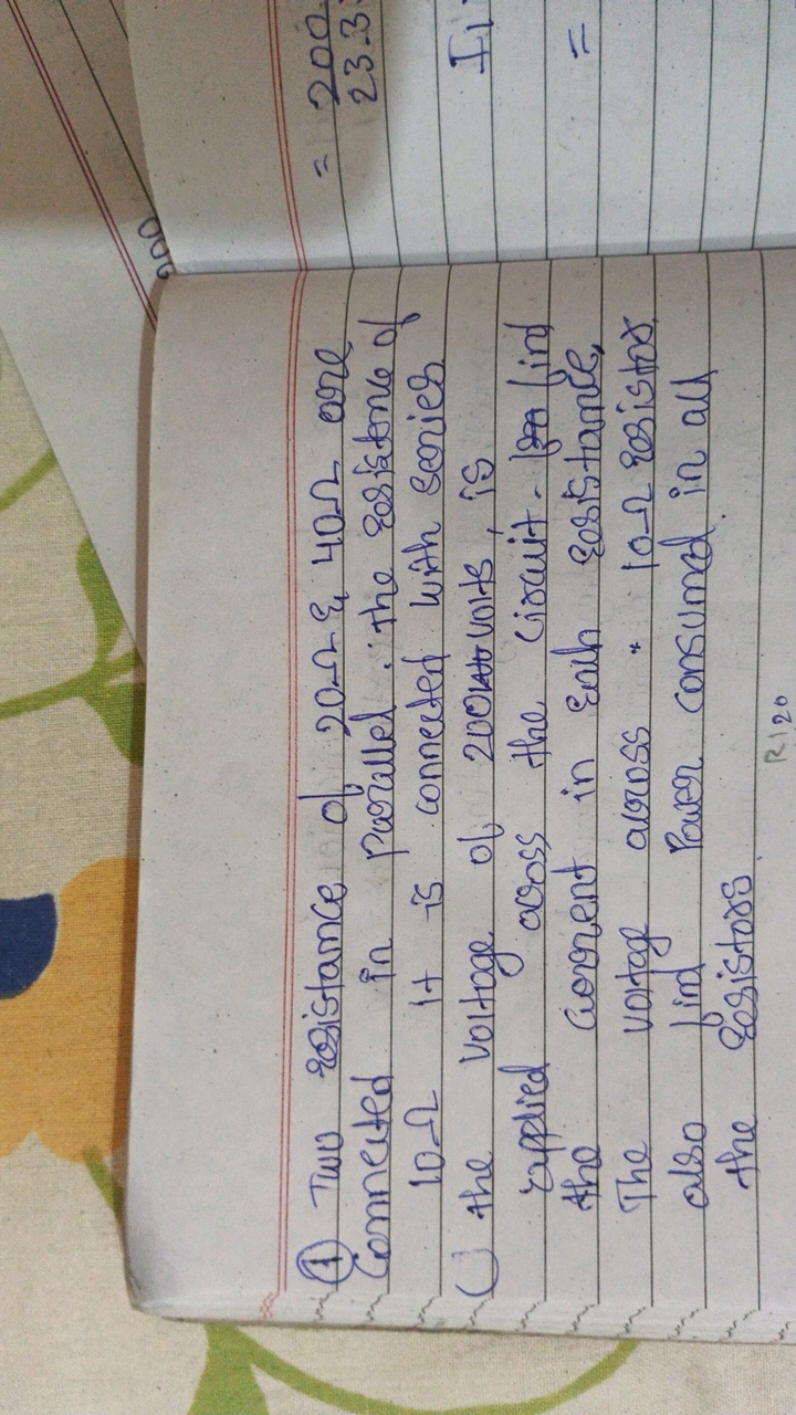 ① Two resistance of 20Ω & 40Ω are
Connected in Parallel. the resistance of
10Ω it is connected with series
the voltage of 200 volts, is
supplied across the circuit. find
the Current in Each resistance,
The voltage across 10Ω resistor
also find Power consumed in all
the resistors.
R1 20
= 200
23.3
I1
=